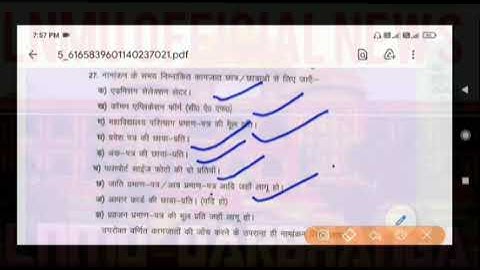 7:57 PM
5_6165839601140237021.pdf
27. नामांकन के समय निम्नांकित कागजात छात्र/छात्राओं से लिए जाएँ-
क) एडमिशन सेलेक्शन लेटर।
ख) कॉमन एप्लिकेशन फॉर्म (सी0 ए0 एफ0)
ग) महाविद्यालय परित्याग प्रमाण-पत्र की मूल प्रति।
घ) प्रवेश पत्र की छाया-प्रति।
ङ) अंक-पत्र की छाया-प्रति।
च) पासपोर्ट साईज फोटो की दो प्रतियाँ।
छ) जाति प्रमाण-पत्र/आय प्रमाण-पत्र आदि जहाँ लागू हो।
ज) आधार कार्ड की छाया-प्रति। (यदि हो)
झ) प्रव्रजन प्रमाण-पत्र की मूल प्रति जहाँ लागू हो।
उपरोक्त वर्णित कागजातों की जाँच करने के उपरान्त ही नामांकन